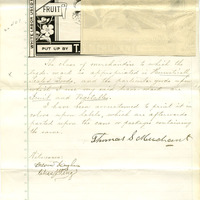 FRUIT
PUT UP BY T
The class of merchandise to which the
trade mark is appropriated is Hermetically
Sealed Goods, and the particular goods upon
which I use my said trade mark are
Fruit and Vegetables.
I have been accustomed to print it in
colors upon labels, which are afterwards
pasted upon the cans or packages containing
the same.
Thomas S. Merchant
Witnesses: